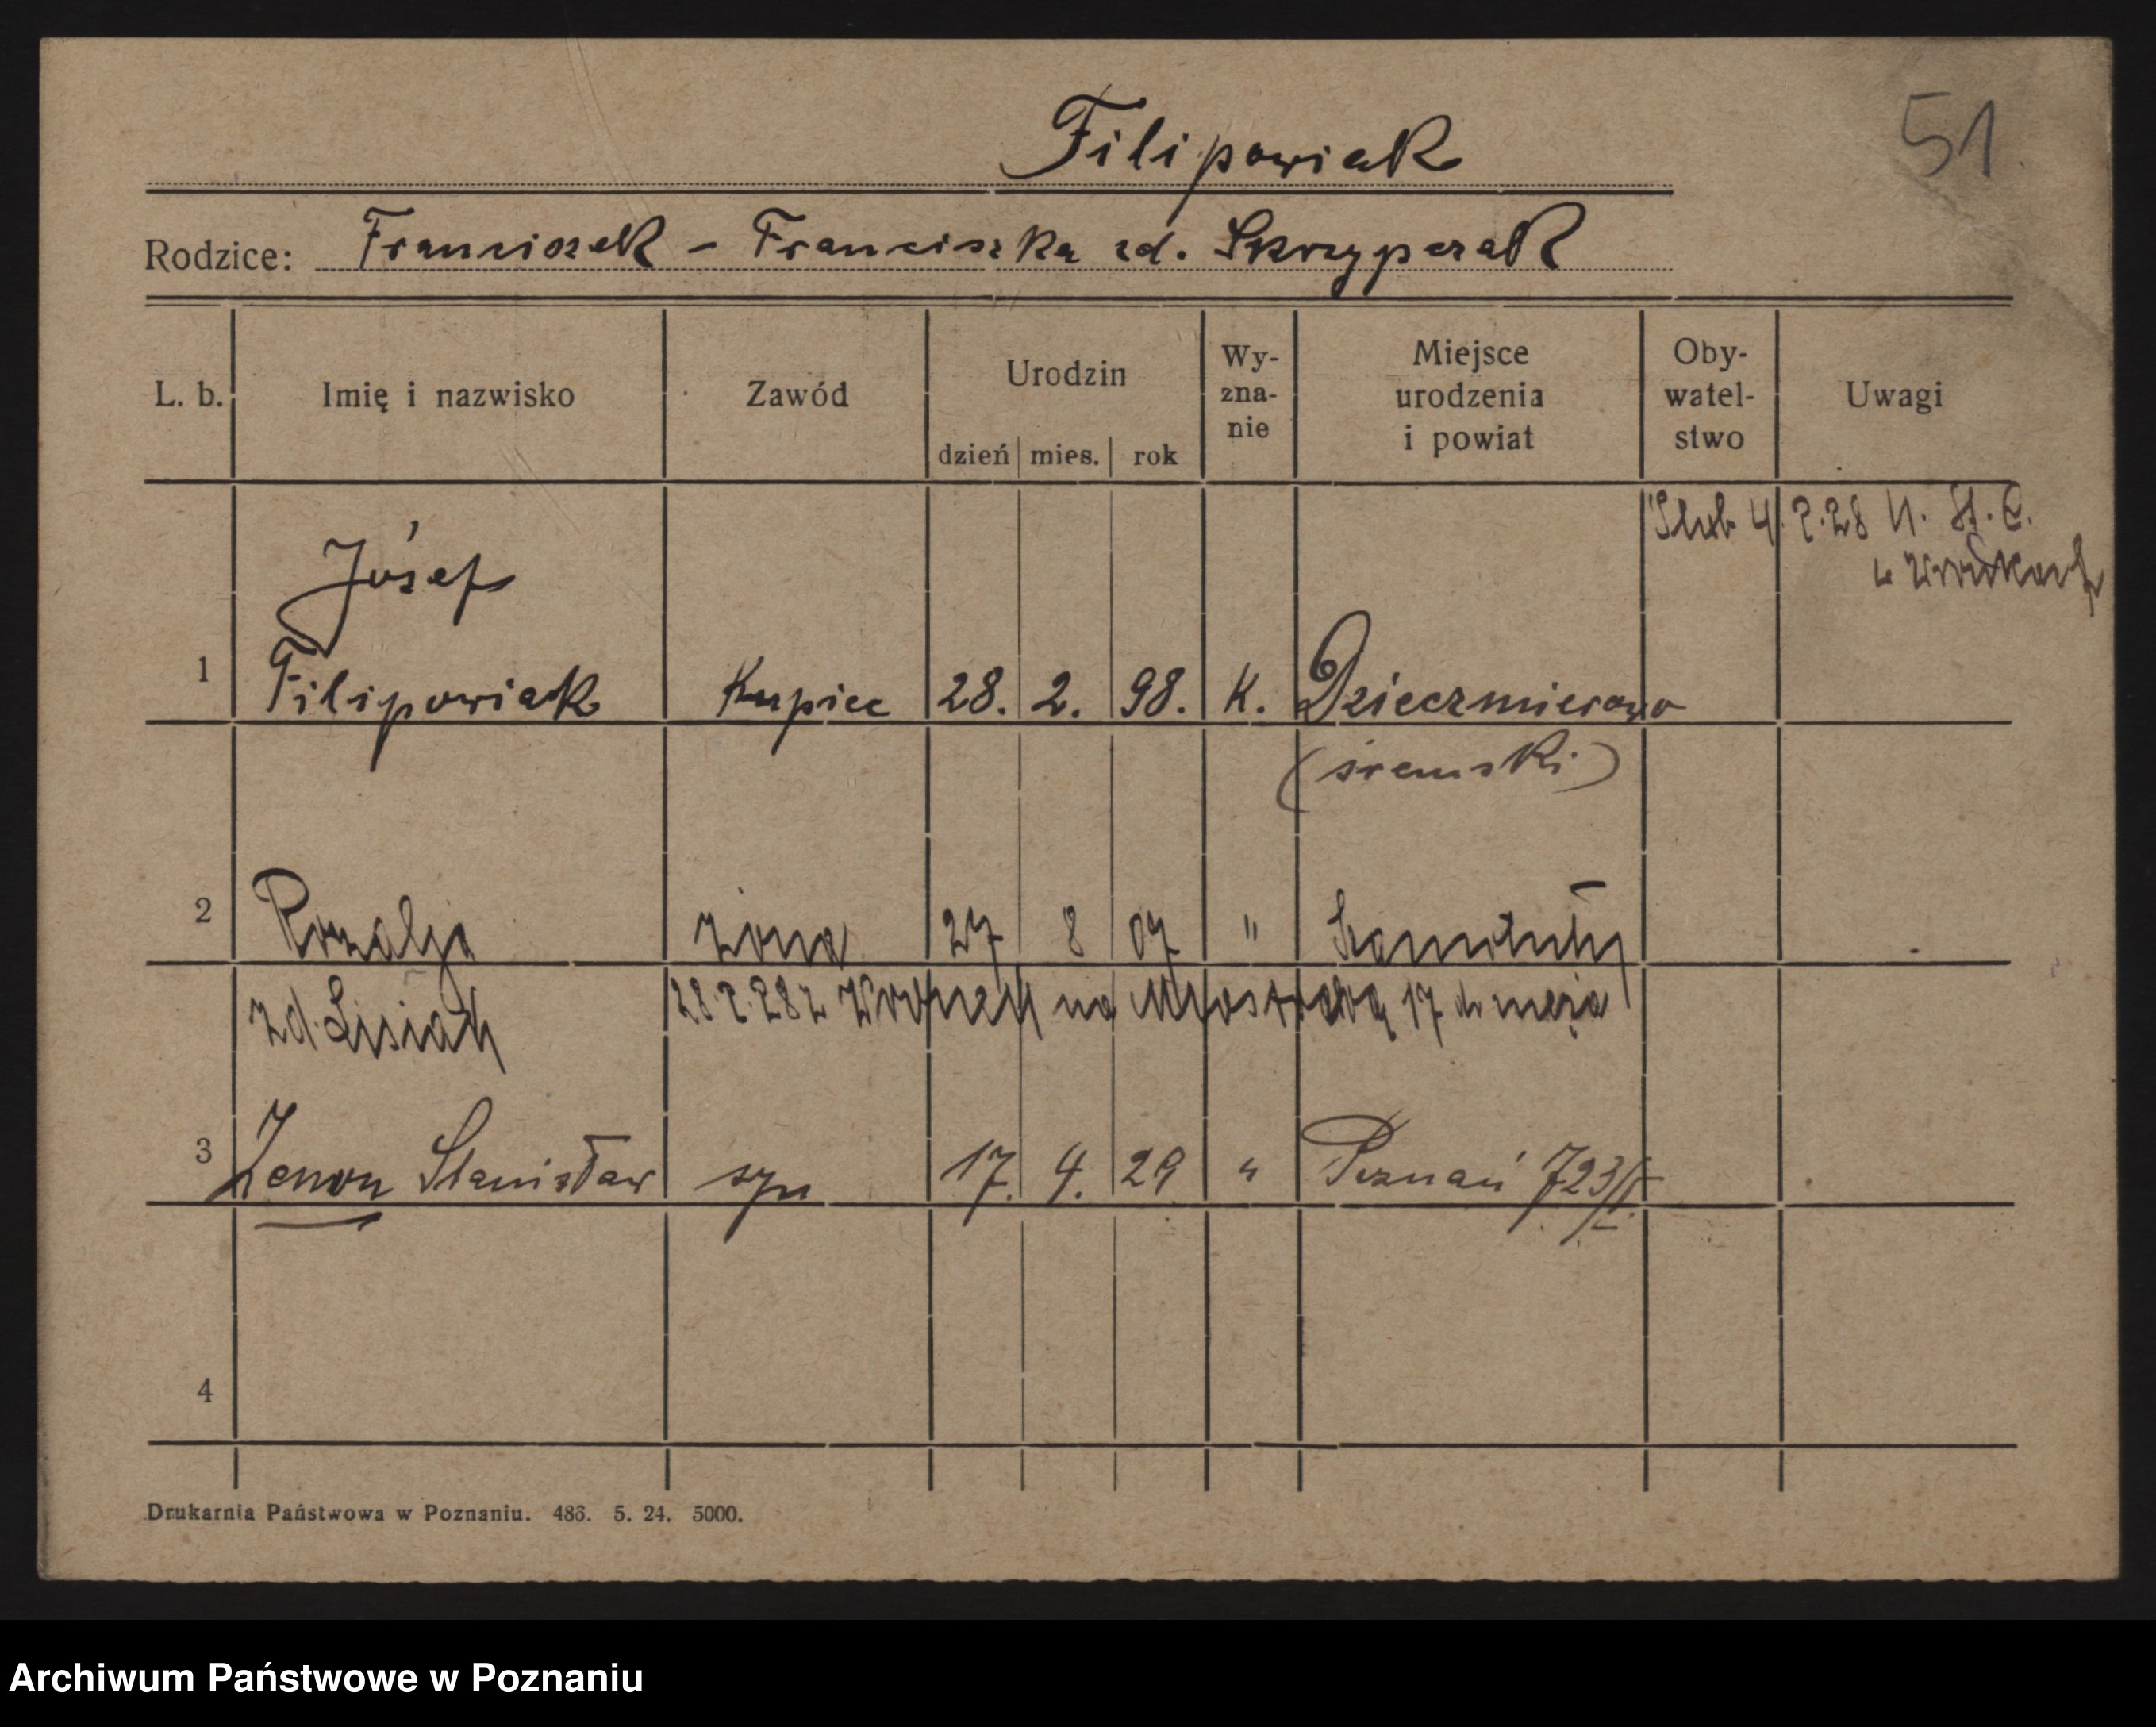 51
Filipowiak
Rodzice: Franciszek – Franciszka zd. Skrzypczak
L. b. Imię i nazwisko Zawód Urodzin dzień mies. rok Wy-zna-nie Miejsce urodzenia i powiat Oby-watel-stwo Uwagi
Ślub 4. 2. 28 U. St. C.
w Wronkach
Józef
1 Filipowiak Kupiec 28. 2. 98. K. Dziećmierowo
(śremski)
2 Rozalja żona 27 8 07 " Szamotuły
zd. Lisiak 28. 2. 28 z Wronek na 17 do męża
3 Zenon Stanisław syn 17. 4. 29 " Poznań 723/II
4
Drukarnia Państwowa w Poznaniu. 486. 5. 24. 5000.
Archiwum Państwowe w Poznaniu